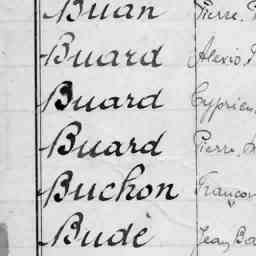 Buan Pierre
Buard Alexis
Buard Cyprien
Buard Pierre
Buchon
Budé Jean